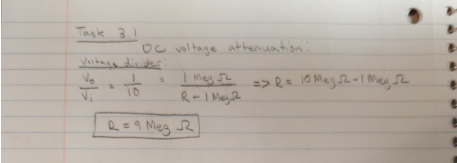 Task 3.1
DC voltage attenuation:
Voltage divider:
V₀/V₁ = 1/10 = 1 Meg Ω/(R + 1 Meg Ω) => R = 10 Meg Ω - 1 Meg Ω
R = 9 Meg Ω